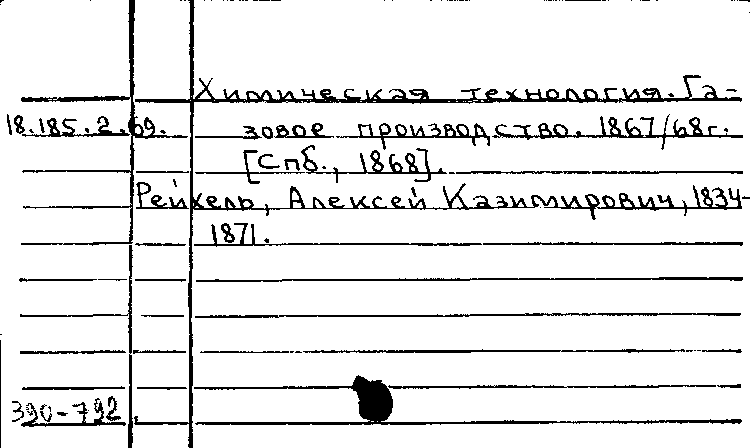 Химическая технология. Га-
18.185.2.69. зовое производство. 1867/68г.
[Спб., 1868].
Рейхель, Алексей Казимирович, 1834-
1871.
390-792.